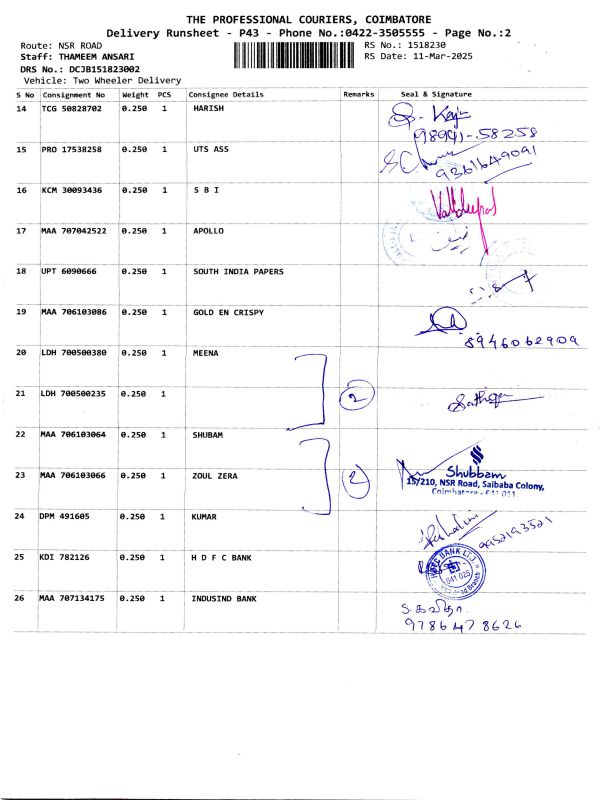 THE PROFESSIONAL COURIERS, COIMBATORE
Delivery Runsheet - P43 - Phone No.:0422-3505555 - Page No.:2
Route: NSR ROAD RS No.: 1518230
Staff: THAMEEM ANSARI RS Date: 11-Mar-2025
DRS No.: DCJB151823002
Vehicle: Two Wheeler Delivery
S No Consignment No Weight PCS Consignee Details Remarks Seal & Signature
14 TCG 50828702 0.250 1 HARISH
98941-58258
15 PRO 17538258 0.250 1 UTS ASS
9361649091
16 KCM 30093436 0.250 1 S B I
17 MAA 707042522 0.250 1 APOLLO
18 UPT 6090666 0.250 1 SOUTH INDIA PAPERS
19 MAA 706103086 0.250 1 GOLD EN CRISPY
8946062909
20 LDH 700500380 0.250 1 MEENA
21 LDH 700500235 0.250 1 2
22 MAA 706103064 0.250 1 SHUBAM
23 MAA 706103066 0.250 1 ZOUL ZERA 2 Shubbam
15/210, NSR Road, Saibaba Colony,
Coimbatore - 641 011
24 DPM 491605 0.250 1 KUMAR
9952193521
25 KDI 782126 0.250 1 H D F C BANK
HDFC BANK LTD
641 025
26 MAA 707134175 0.250 1 INDUSIND BANK S. கவிதா
9786478626